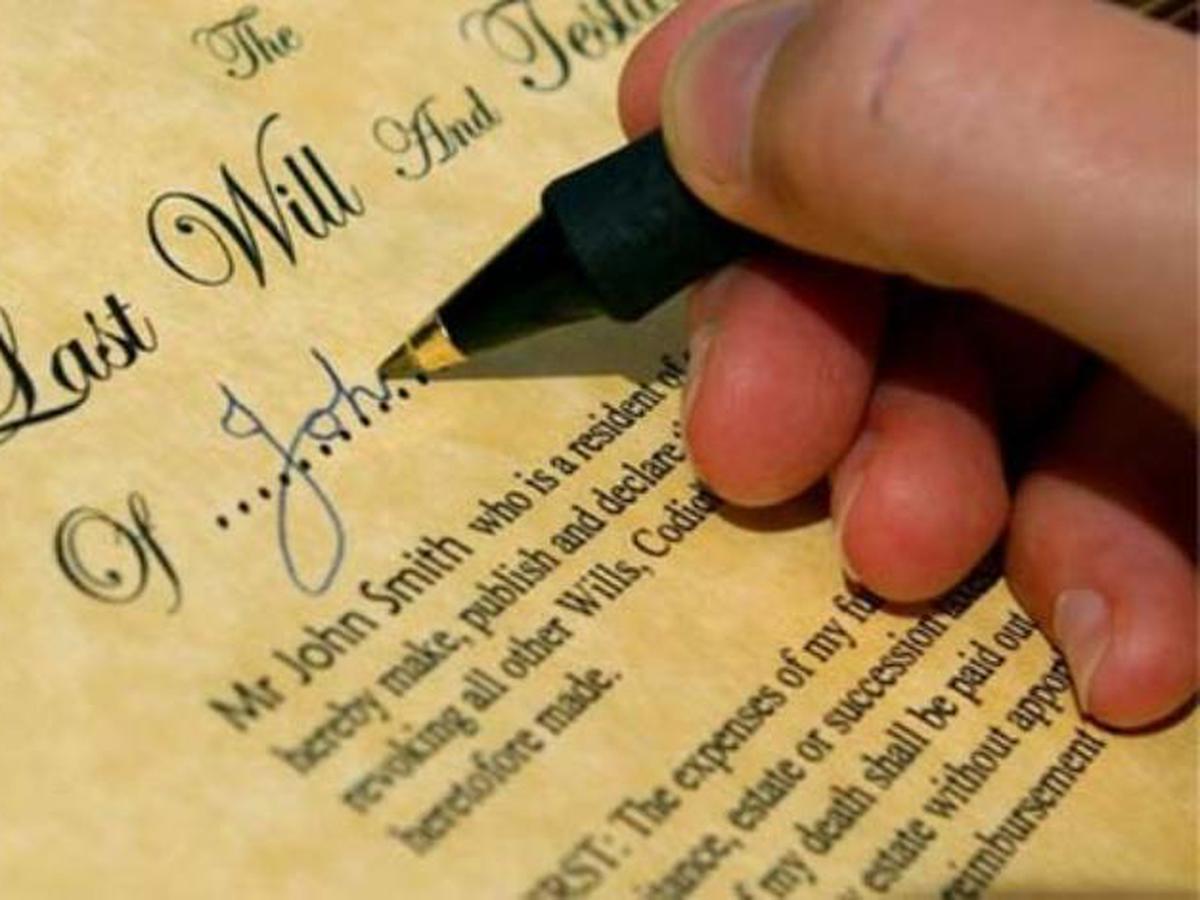 The
Last Will And Testa
Of ....John..
Mr John Smith who is a resident of
hereby make, publish and declare
revoking all other Wills, Codici
heretofore made.
RST: The expenses of my fu
itance, estate or succession
f my death shall be paid out
estate without appor
reimbursement